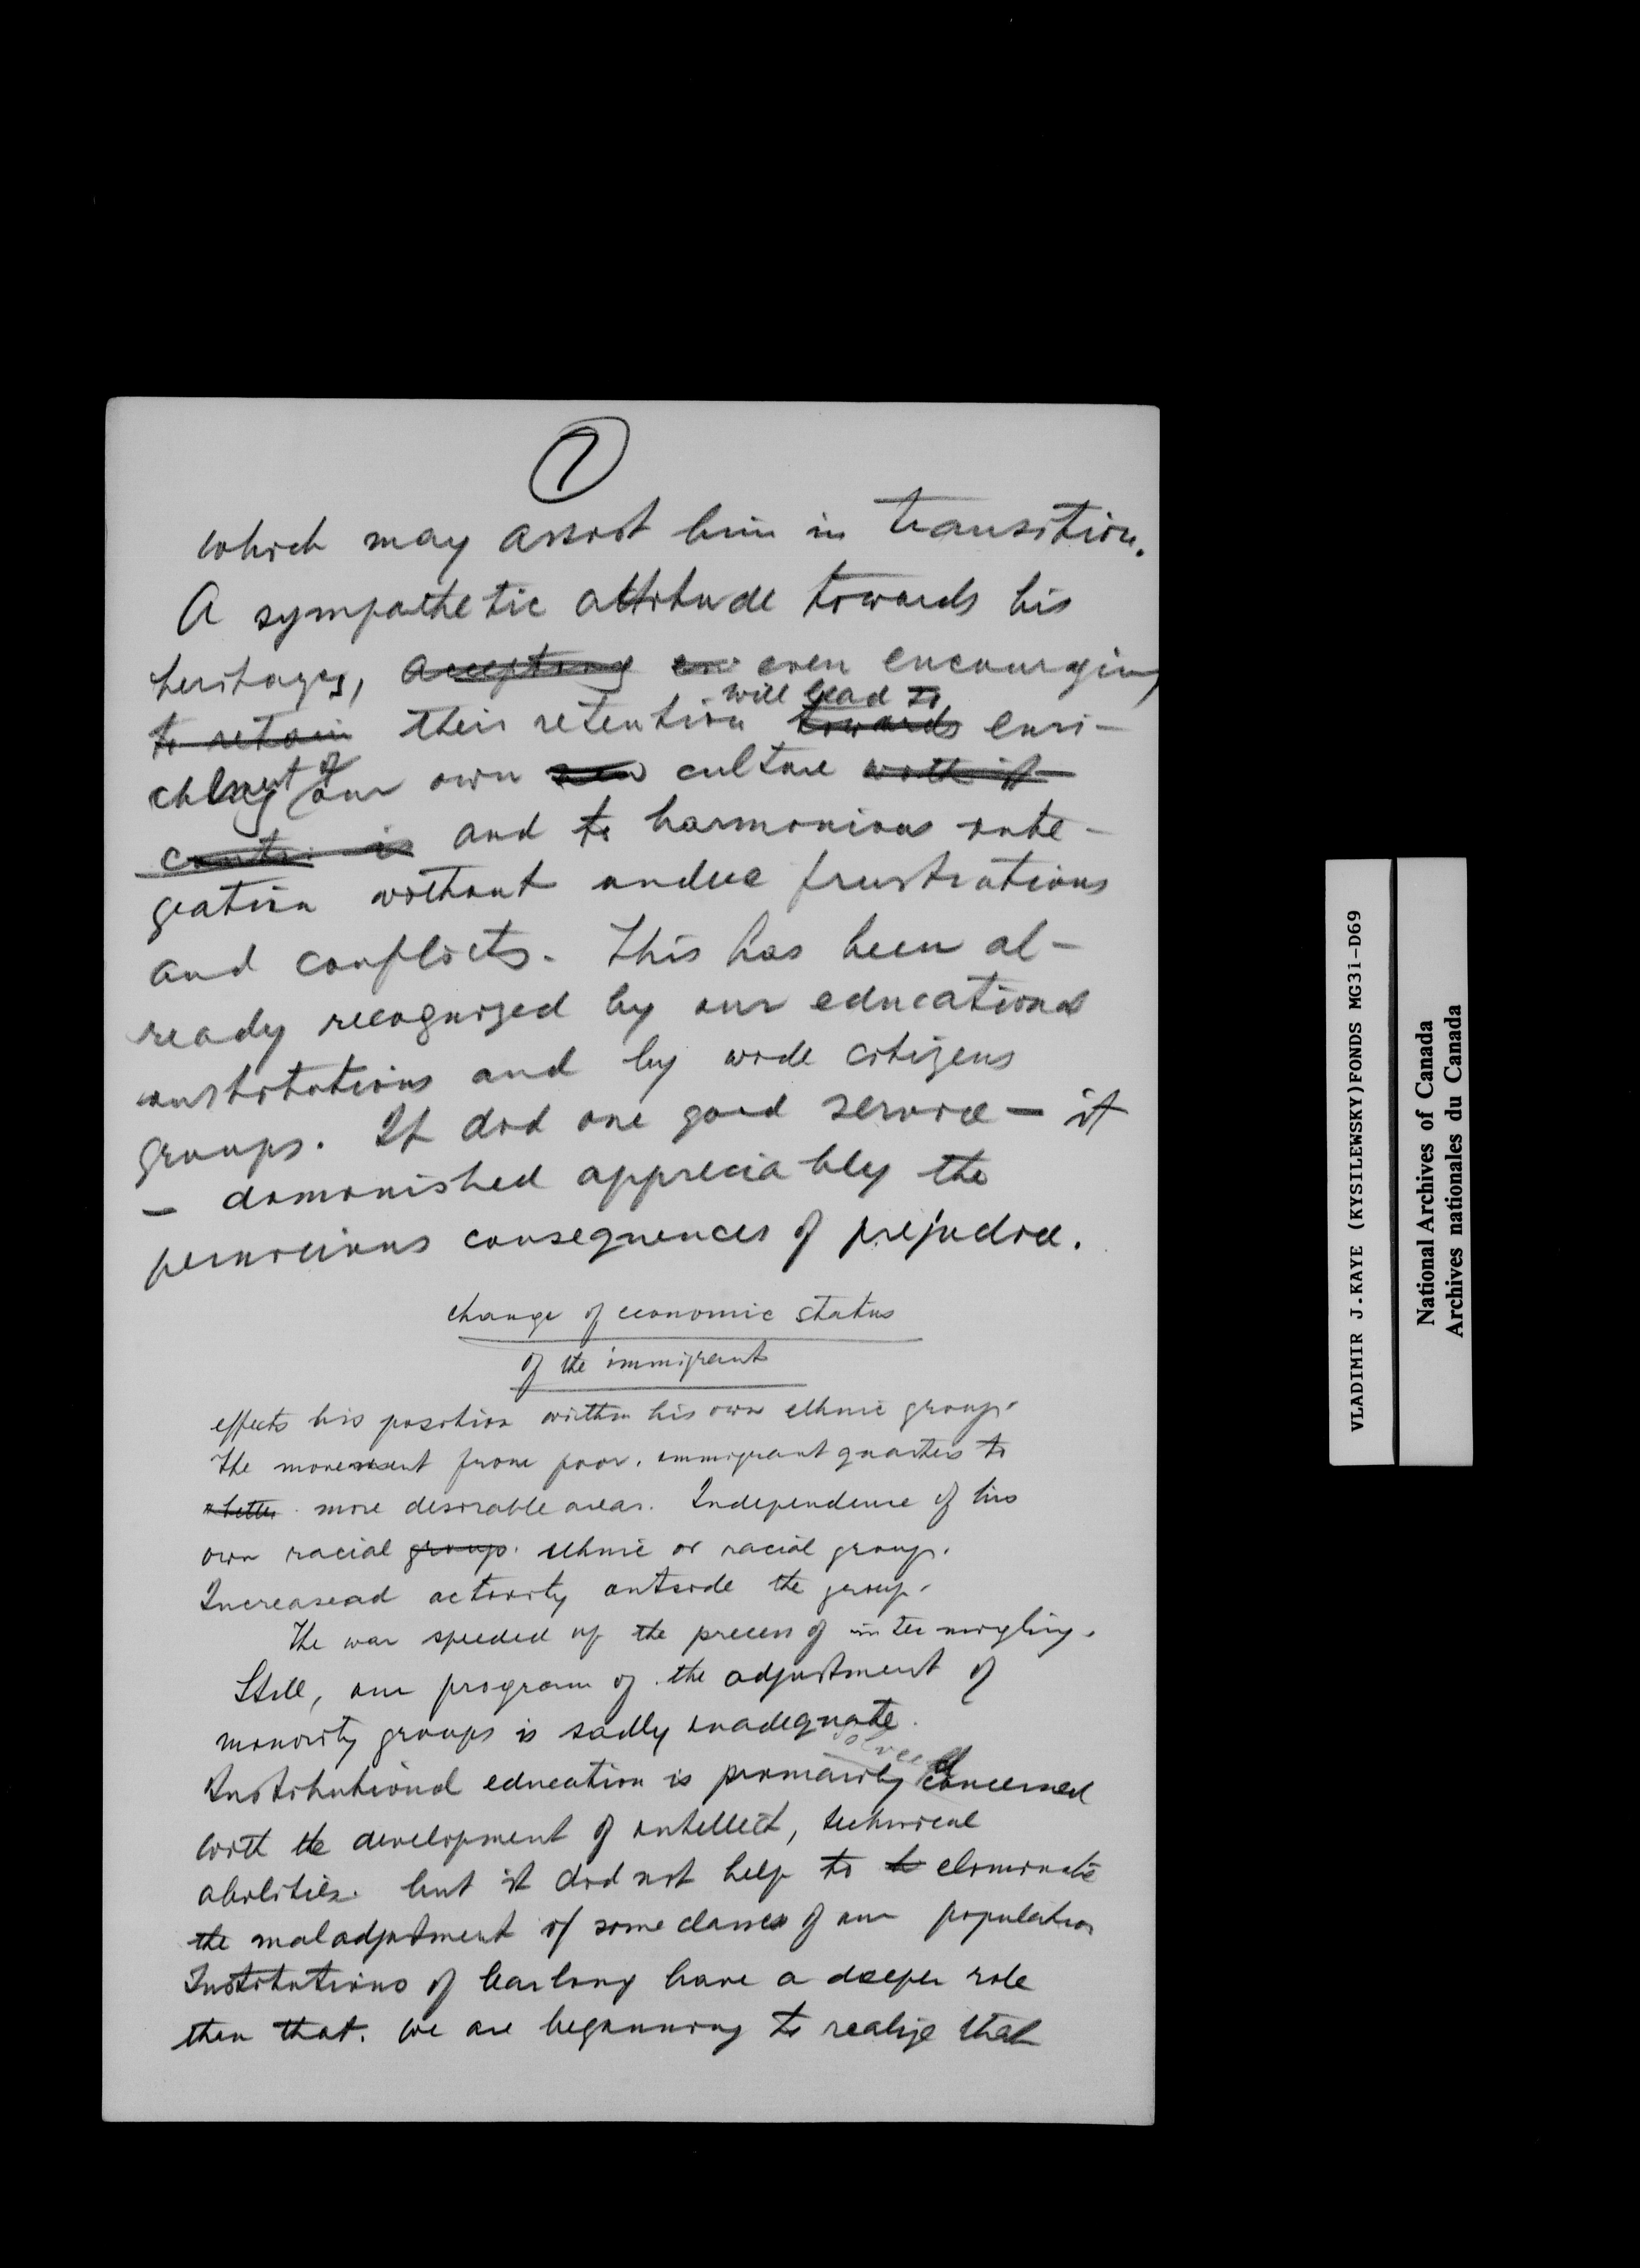 7
which may assist him in transition.
A sympathetic attitude towards his
heritages, accepting even encouraging
to retain their retention towards will lead to enri-
chment of our own new culture with it
contri is and to harmonious inte-
gration without undue frustrations
and conflicts. This has been al-
ready recognized by our educational
institutions and by wide citizens
groups. It did one good service — it
— diminished appreciably the
pernicious consequences of prejudice.
change of economic status
of the immigrant
effects his position within his own ethnic group.
The movement from poor, immigrant quarters to
better more desirable areas. Independence of his
own racial group. ethnic or racial group.
Increasead activity outside the group.
The war speeded up the process of intermingling.
Still, our program of the adjustment of
minority groups is sadly inadequate.
Institutional education is primarily concerned
with the development of intellect, technical
abilities. but it did not help to eliminate
the maladjustment of some classes of our population
Institutions of learning have a deeper role
then that. We are beginning to realize that
VLADIMIR J.KAYE (KYSILEWSKY)FONDS MG31-D69
National Archives of Canada
Archives nationales du Canada